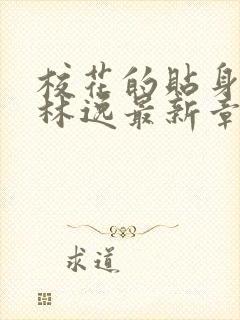 校花的贴身
林逸最新章
求道